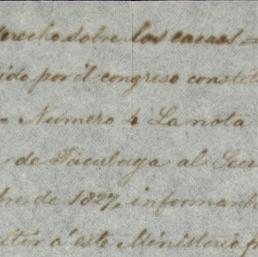 derecho sobre los cacaos =
ido por el congreso constit
Numero 4 La nota
de Tacubaya al Secr
bre de 1827, informando
este Ministerio